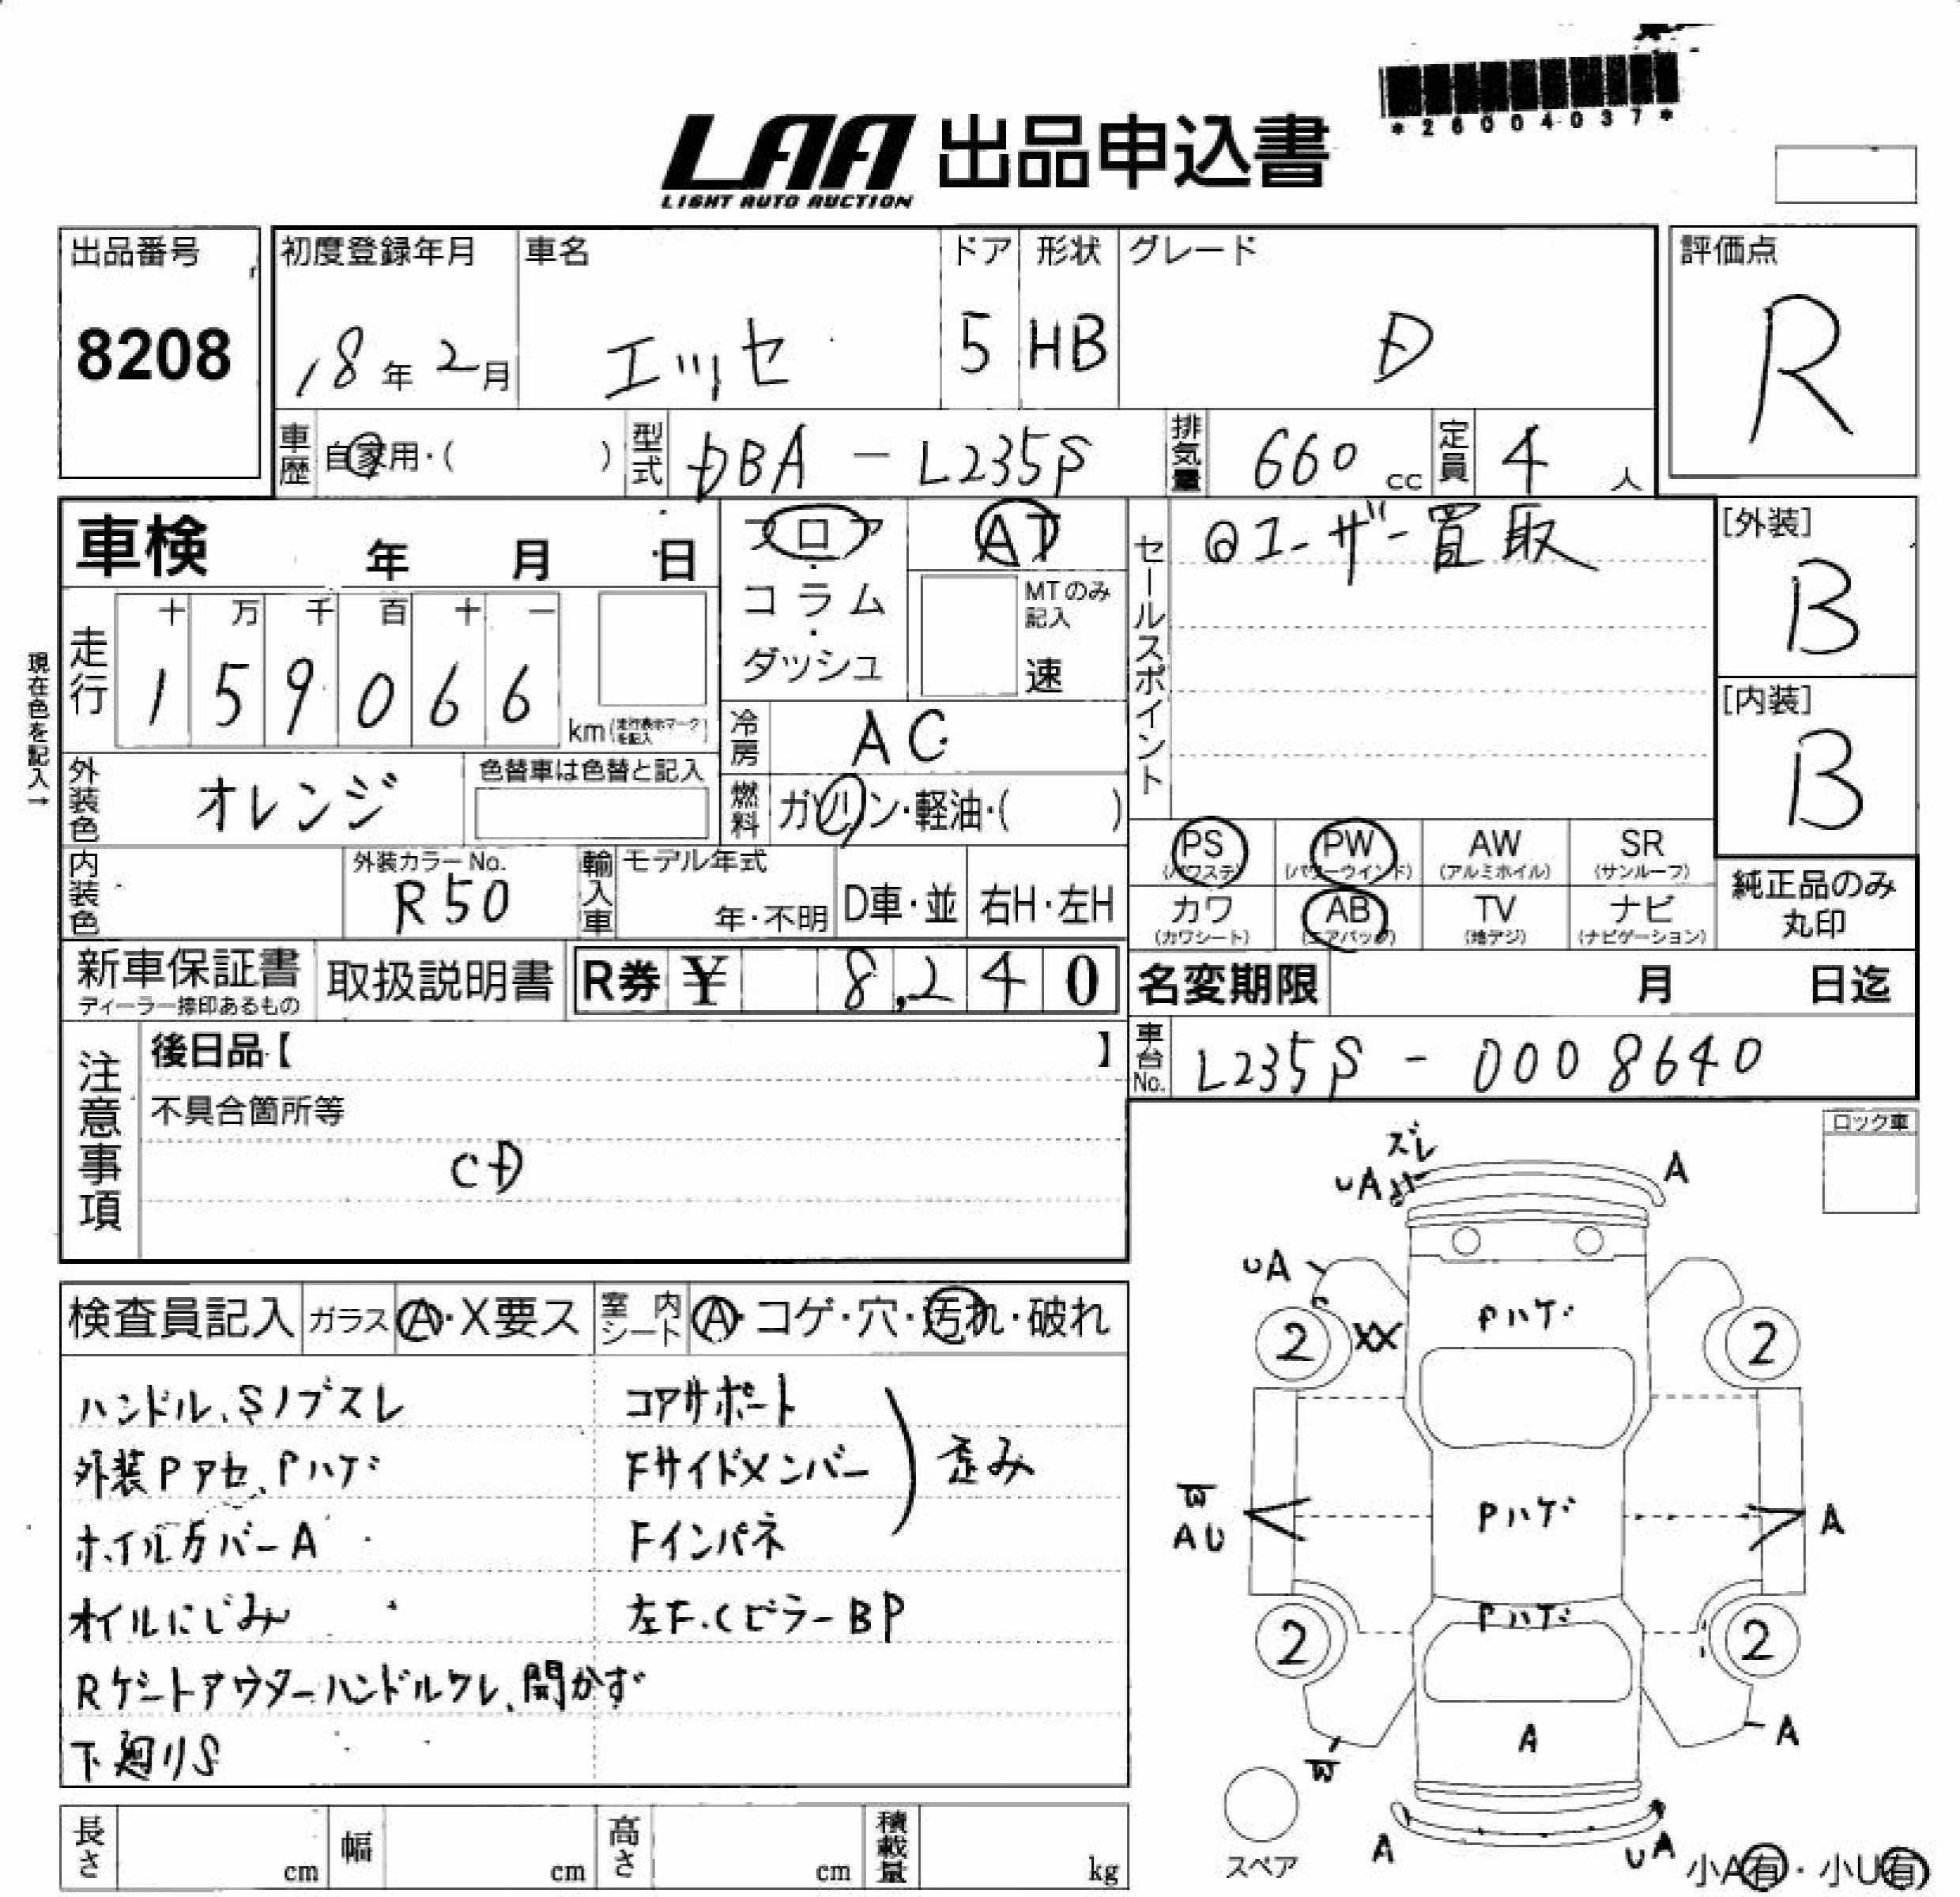 *26004037*
LAA 出品申込書
LIGHT AUTO AUCTION
出品番号
8208
初度登録年月
18年2月
車名
エッセ
ドア
5
形状
HB
グレード
D
評価点
R
車歴
自家用・( )
型式
DBA - L235S
排気量
660 cc
定員
4 人
車検 年 月 日
フロア
・
コラム
・
ダッシュ
AT
MTのみ
記入
速
セールスポイント
@ユーザー買取
[外装]
B
[内装]
B
現在色を記入→
走行
十 万 千 百 十 一
1 5 9 0 6 6
km(走行表示マークを記入)
冷房
AC
外装色
オレンジ
色替車は色替と記入
燃料
ガソリン・軽油・( )
PS
(パワステ)
PW
(パワーウインド)
AW
(アルミホイル)
SR
(サンルーフ)
カワ
(カワシート)
AB
(エアバッグ)
TV
(地デジ)
ナビ
(ナビゲーション)
純正品のみ
丸印
内装色
外装カラーNo.
R50
輸入車
モデル年式
年・不明
D車・並
右H・左H
新車保証書
ディーラー捺印あるもの
取扱説明書
R券 ¥ 8,240
名変期限 月 日迄
車台No.
L235S - 0008640
注意事項
後日品【 】
不具合箇所等
CD
ロック車
検査員記入
ガラス
A・X要ス
室内シート
A・コゲ・穴・汚れ・破れ
ハンドル、Sノブスレ
外装Pアセ、Pハゲ
ホイルカバーA
オイルにじみ
Rゲートアウターハンドルワレ、開かず
下廻りS
コアサポート
Fサイドメンバー
Fインパネ
歪み
左F.CピラーBP
ズレ
UA
A
UA
XX
Pハゲ
2
2
W
AU
Pハゲ
A
2
Pハゲ
2
A
A
W
スペア
A
UA
小A有・小U有
長さ cm
幅 cm
高さ cm
積載量 kg